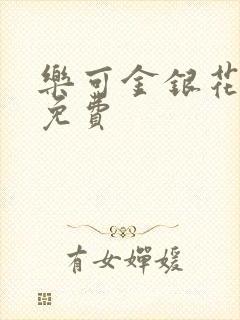 樂可金銀花
免費
有女嬋媛